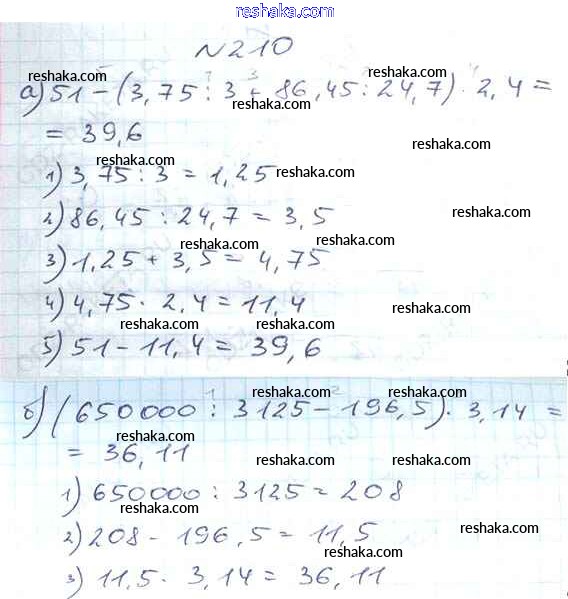 reshaka.com
№210
reshaka.com reshaka.com
а) 51 - (3,75 : 3 + 86,45 : 24,7) · 2,4 =
reshaka.com reshaka.com
= 39,6
reshaka.com
1) 3,75 : 3 = 1,25
reshaka.com
2) 86,45 : 24,7 = 3,5
reshaka.com
reshaka.com
reshaka.com
3) 1,25 + 3,5 = 4,75
reshaka.com
4) 4,75 · 2,4 = 11,4
reshaka.com
reshaka.com
reshaka.com
5) 51 - 11,4 = 39,6
reshaka.com
reshaka.com
б) (650000 : 3125 - 196,5) · 3,14 =
reshaka.com
reshaka.com
= 36,11
reshaka.com
reshaka.com
1) 650000 : 3125 = 208
reshaka.com
reshaka.com
2) 208 - 196,5 = 11,5
reshaka.com
3) 11,5 · 3,14 = 36,11